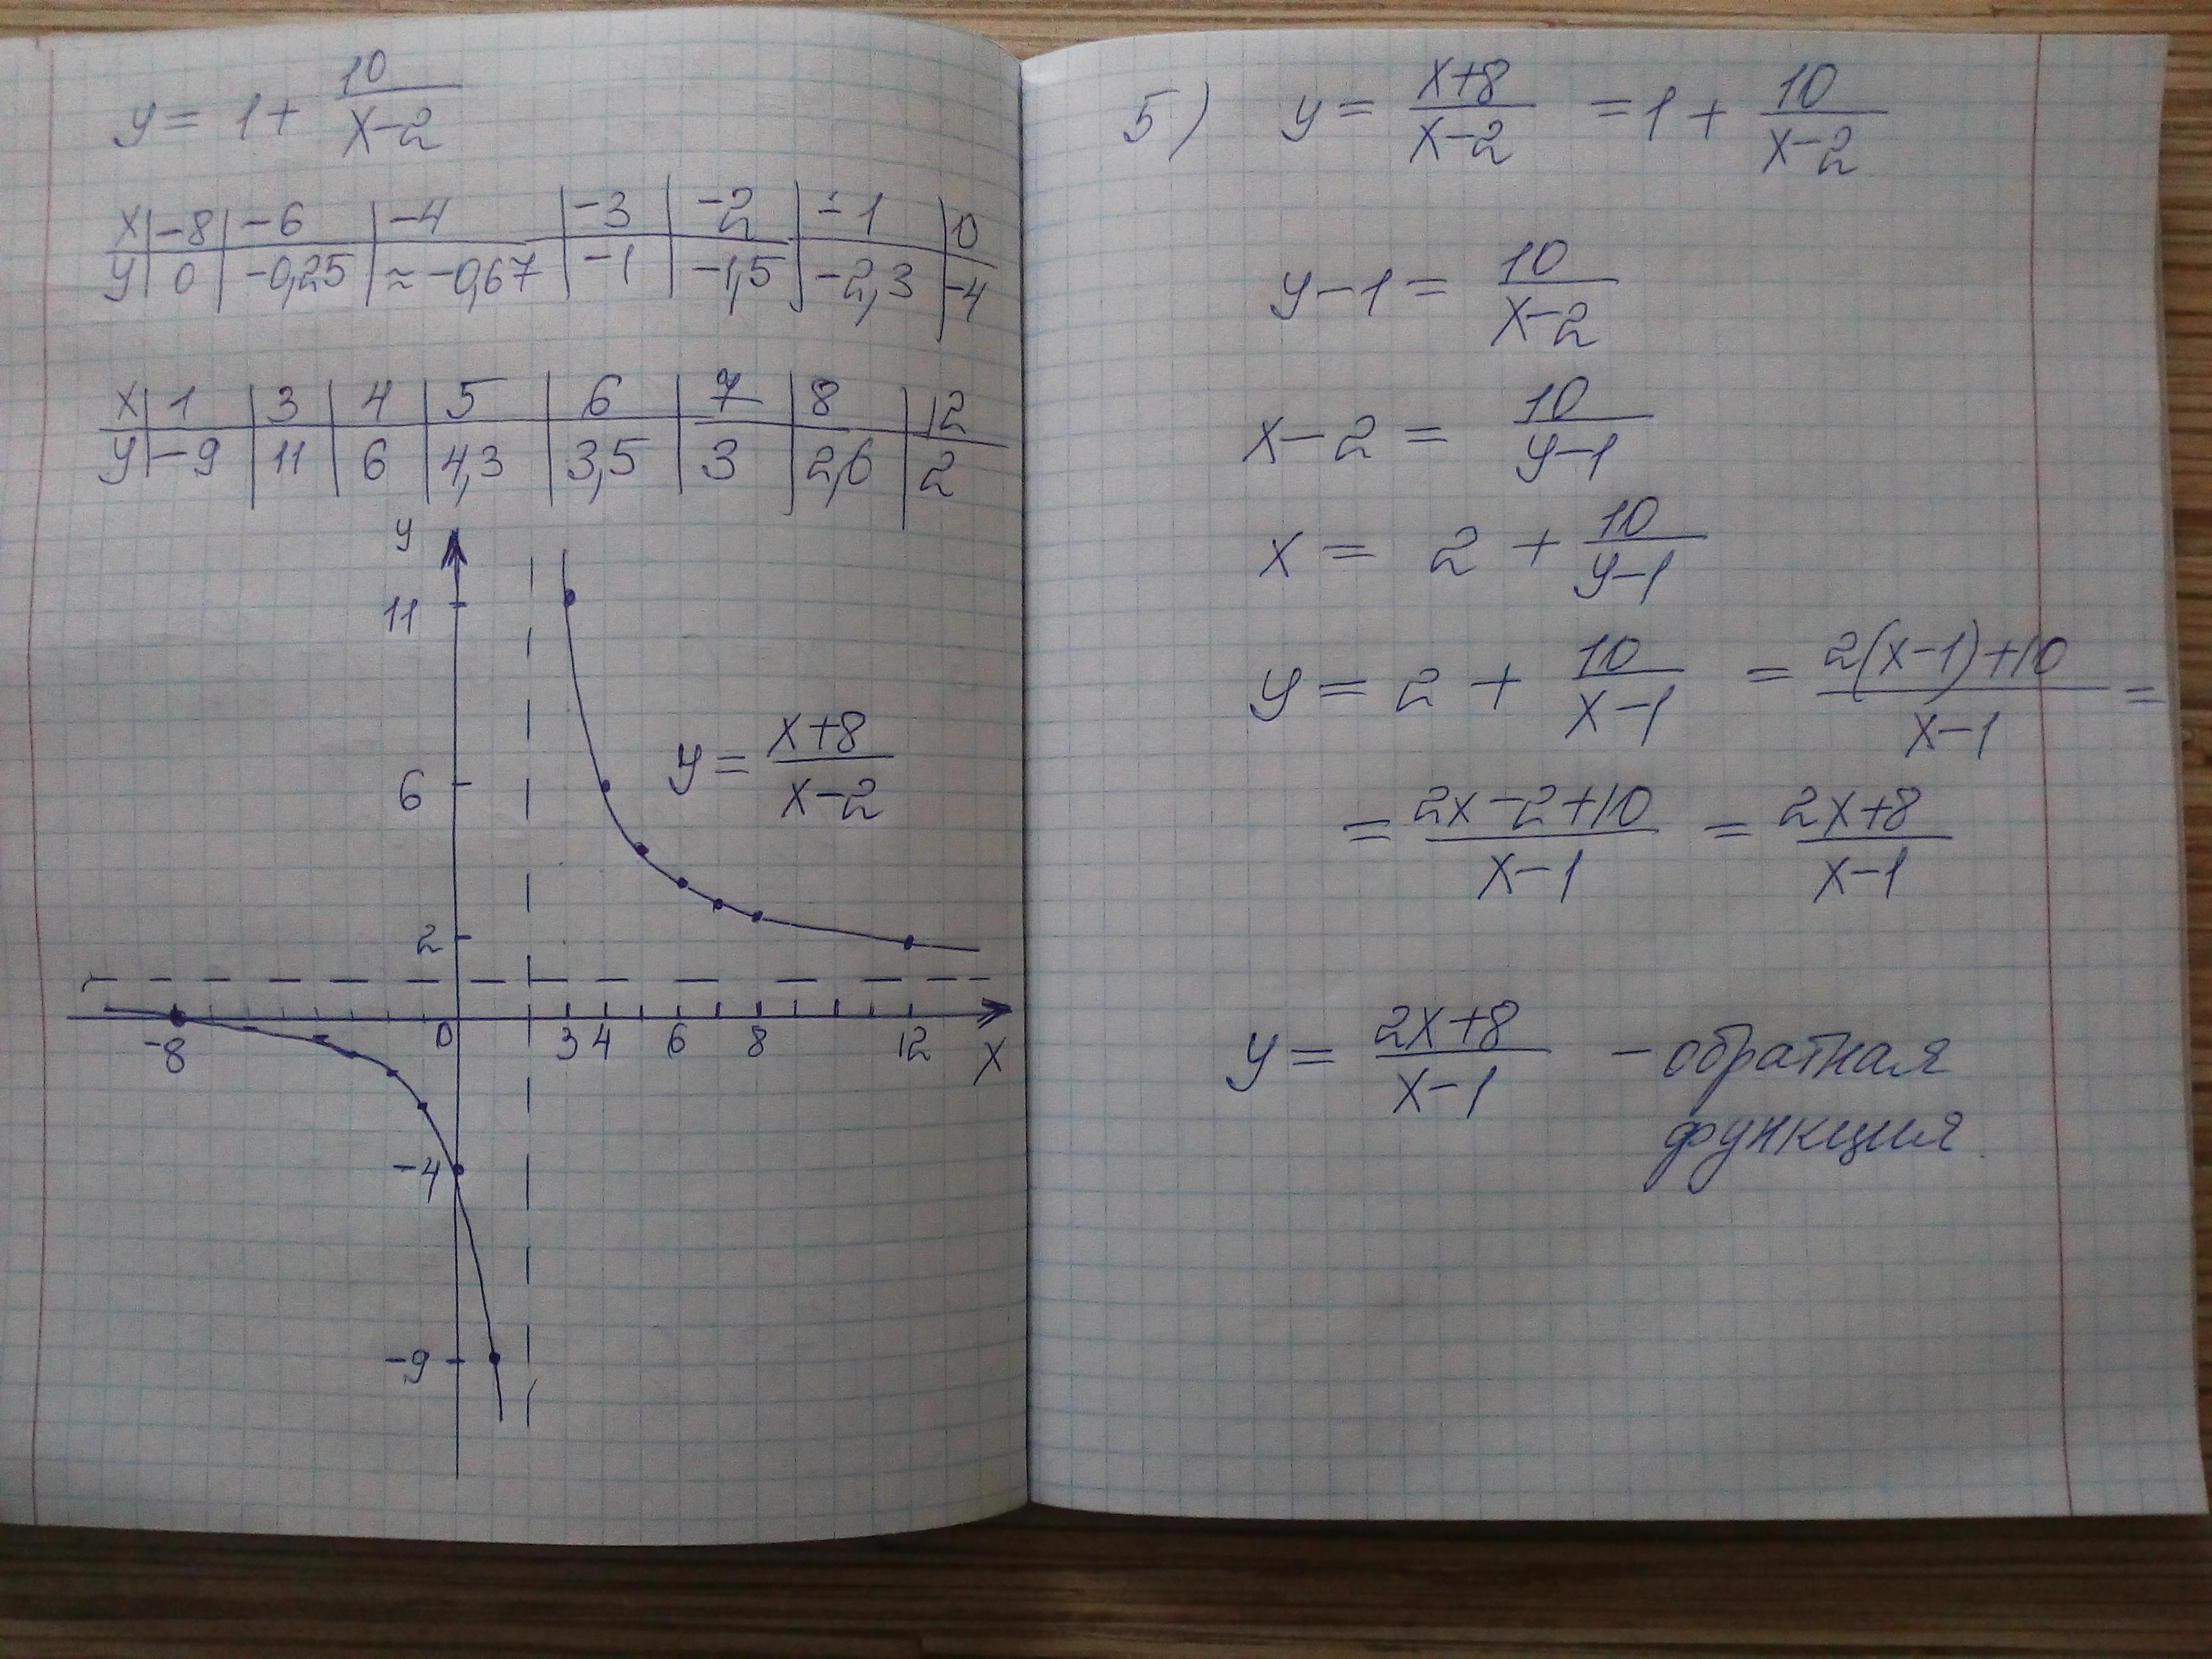 y = 1 + 10/(x-2)
x | -8 | -6 | -4 | -3 | -2 | -1 | 0
y | 0 | -0,25 | ≈ -0,67 | -1 | -1,5 | -2,3 | -4
x | 1 | 3 | 4 | 5 | 6 | 7 | 8 | 12
y | -9 | 11 | 6 | 4,3 | 3,5 | 3 | 2,6 | 2
y
11
6
y = (x+8)/(x-2)
2
-8 0 3 4 6 8 12 x
-4
-9
5) y = (x+8)/(x-2) = 1 + 10/(x-2)
y-1 = 10/(x-2)
x-2 = 10/(y-1)
x = 2 + 10/(y-1)
y = 2 + 10/(x-1) = (2(x-1)+10)/(x-1) =
= (2x-2+10)/(x-1) = (2x+8)/(x-1)
y = (2x+8)/(x-1) - обратная
функция.